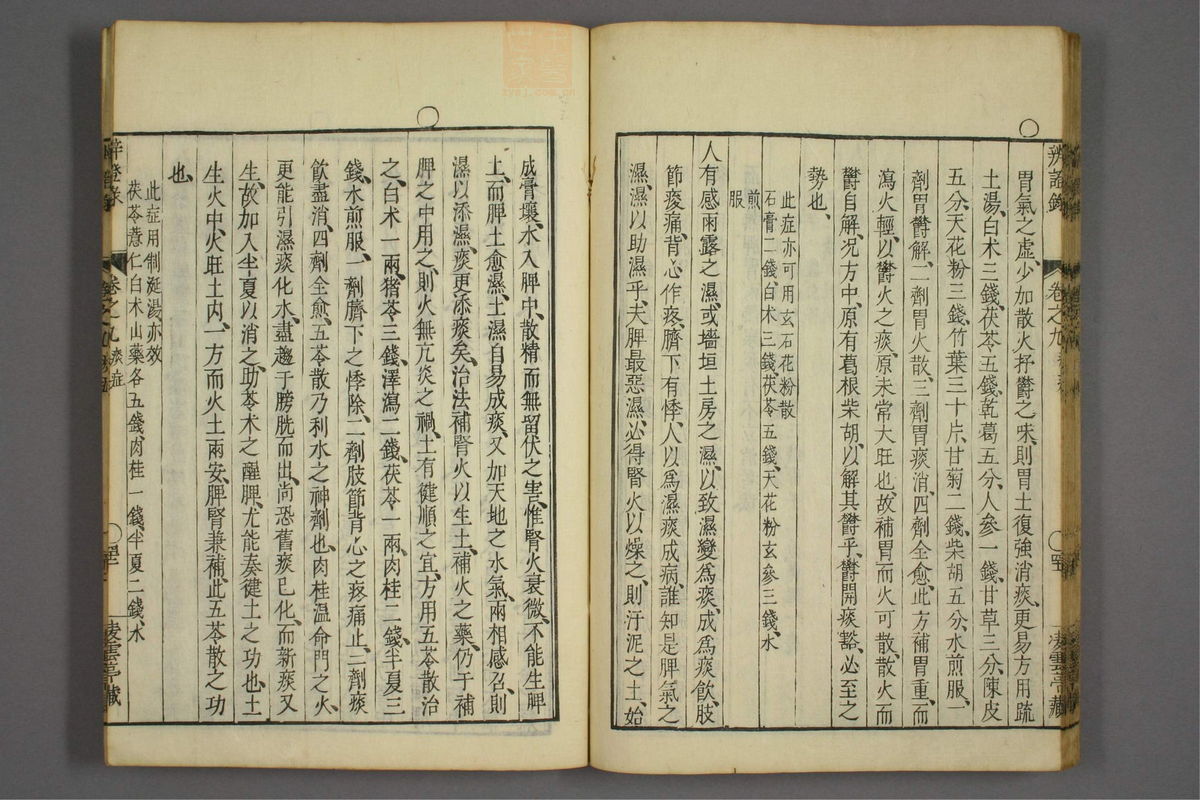 辨證錄 卷之九 凌雲亭藏
胃氣之虛、少加散火抒鬱之味、則胃土復強消痰、更易方用疏
土湯、白术三錢、茯苓五錢、乾葛五分、人參一錢、甘草三分、陳皮
五分、天花粉三錢、竹葉三十片、甘菊二錢、柴胡五分、水煎服、一
劑胃鬱解、二劑胃火散、三劑胃痰消、四劑全愈、此方補胃重、而
瀉火輕、以鬱火之痰、原未常大旺也、故補胃而火可散、散火而
鬱自解、况方中、原有葛根柴胡、以解其鬱乎、鬱開痰豁、必至之
勢也、
此症亦可用玄石花粉散
石膏二錢、白术三錢、茯苓五錢、天花粉玄參三錢、水
煎
服
人有感雨露之濕、或墻垣土房之濕、以致濕變爲痰、成爲痰飲、肢
節痠痛、背心作疼、臍下有悸、人以爲濕痰成病、誰知是脾氣之
濕、濕以助濕乎、夫脾最惡濕、必得腎火以燥之、則汙泥之土、始
成膏壤、水入脾中、散精而無留伏之害、惟腎火衰微、不能生脾
土、而脾土愈濕、土濕自易成痰、又加天地之水氣、兩相感召、則
濕以添濕、痰更添痰矣、治法補腎火以生土、補火之藥、仍于補
脾之中用之、則火無亢炎之禍、土有健順之宜、方用五苓散治
之、白术一兩、猪苓三錢、澤瀉二錢、茯苓一兩、肉桂二錢、半夏三
錢、水煎服、一劑臍下之悸除、二劑肢節背心之疼痛止、三劑痰
飲盡消、四劑全愈、五苓散乃利水之神劑也、肉桂溫命門之火、
更能引濕痰化水、盡趨于膀胱而出、尚恐舊痰已化、而新痰又
生、故加入半夏以消之、助苓术之醒脾、尤能奏健土之功也、土
生火中、火旺土内、一方而火土兩安、脾腎兼補、此五苓散之功
也、
此症用制涎湯亦效
茯苓薏仁白术山藥各五錢、肉桂一錢、半夏二錢、水
辛證录 卷之九 痰症 凌雲亭藏